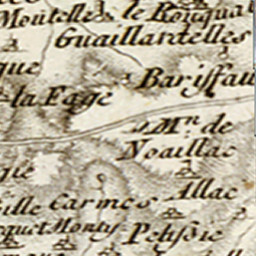 Moutelle
le Rouqual
Guaillardelles
que
Bariffau
la Fage
Mn. de
Noaillac
gie
Allac
ille Carmes
cquet Montf